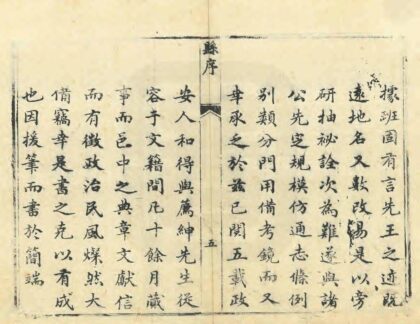 據班固有言先王之迹既
遠地名又數改易是以旁
研抽祕詮次為難遂與諸
公先定規模仿通志條例
別類分門用備考鏡而又
幸承乏於茲已閱五載政
縣序
五
安人和得與薦紳先生從
容于文籍間凡十餘月蕆
事而邑中之典章文獻信
而有徵政治民風燦然大
備竊幸是書之克以有成
也因援筆而書於簡端